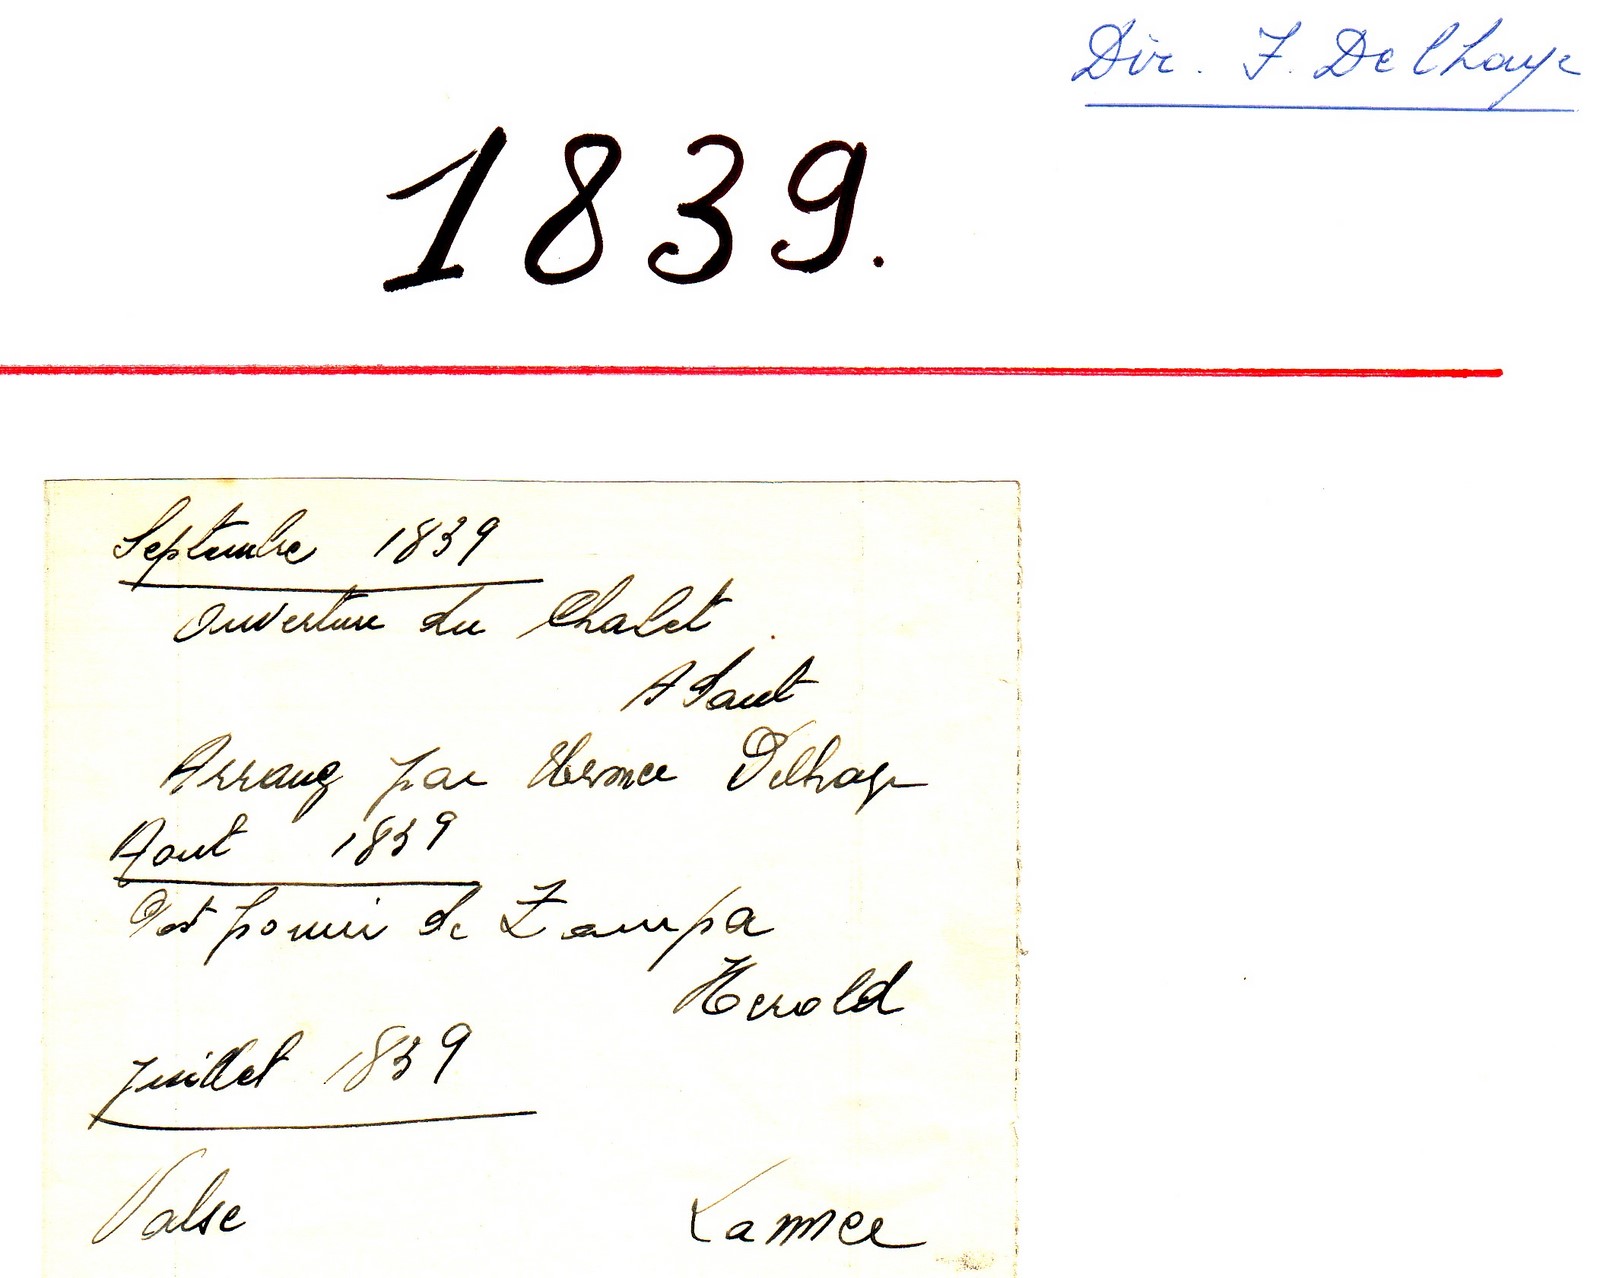 Dir. F. Delhaye
1839.
Septembre 1839
Ouverture du Chalet
A
Arrang par Delhaye
Aout 1839
Pot pourri de Zampa
Herold
Juillet 1839
Valse Lanner